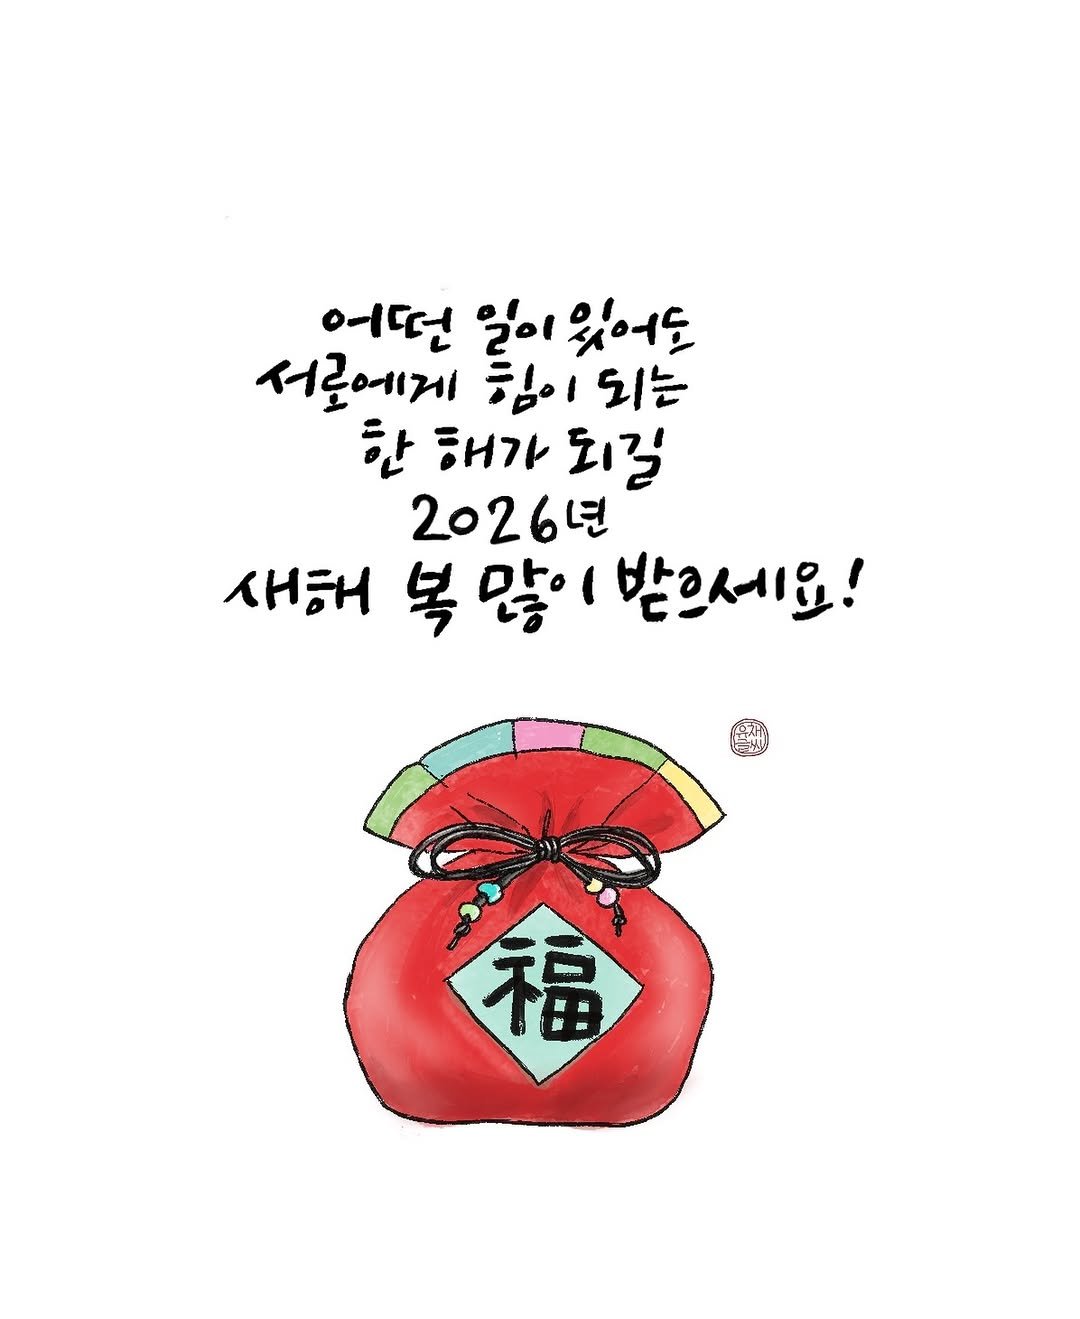 어떤 일이 있어도
서로에게 힘이 되는
한 해가 되길
2026년
새해 복 많이 받으세요!
유채
글씨
福